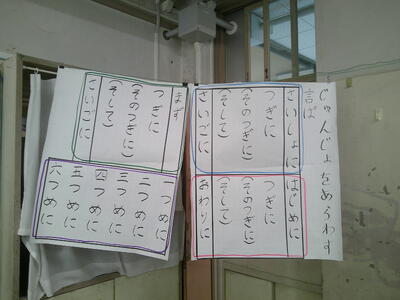 じゅんじょをあらわす
言ば
さいしょに
つぎに
(そのつぎに)
(そして)
さいごに
はじめに
つぎに
(そのつぎに)
(そして)
おわりに
まず
つぎに
(そのつぎに)
(そして)
さいごに
一つめに
二つめに
三つめに
四つめに
五つめに
六つめに